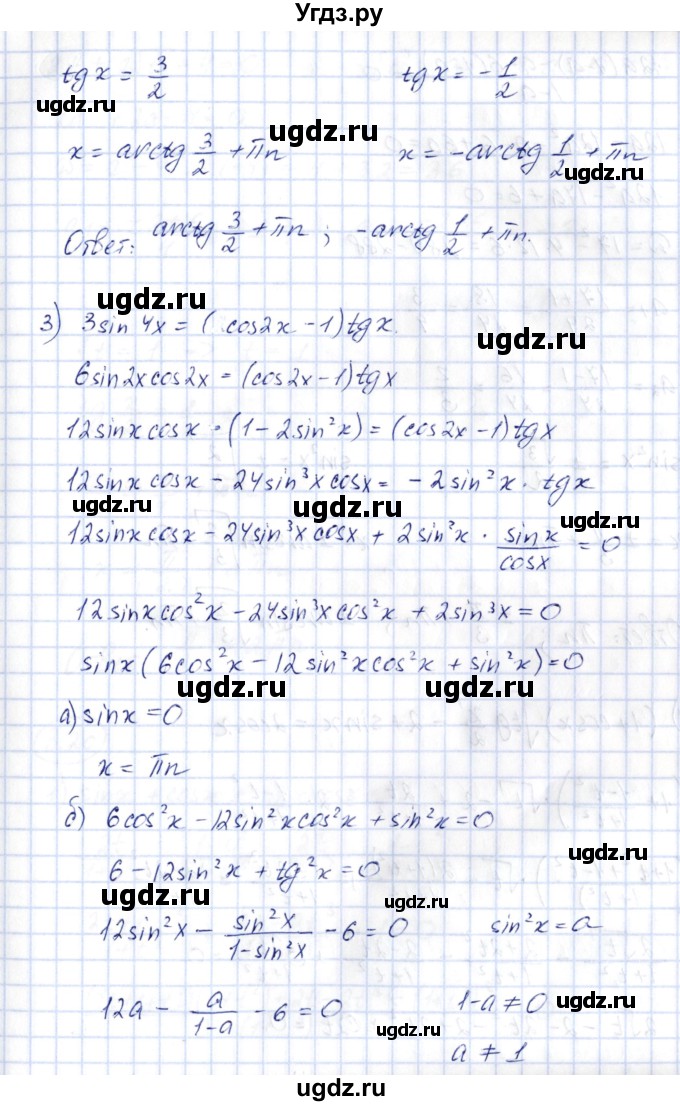 Угдз.ру
tg x = 3/2    tg x = -1/2
ugdz.ru ugdz.ru
ugdz.ru
x = arctg 3/2 + πn    x = -arctg 1/2 + πn
ugdz.ru
Ответ: arctg 3/2 + πn ; -arctg 1/2 + πn.
ugdz.ru
ugdz.ru
3) 3sin4x = (cos2x - 1)tgx.
6sin2xcos2x = (cos2x - 1)tgx
12sinxcosx · (1 - 2sin²x) = (cos2x - 1)tgx
ugdz.ru
12sinxcosx - 24sin³xcosx = -2sin²x · tgx
ugdz.ru
ugdz.ru
12sinxcosx - 24sin³xcosx + 2sin²x · sinx/cosx = 0
12sinxcos²x - 24sin³xcos²x + 2sin³x = 0
ugdz.ru
sinx(6cos²x - 12sin²xcos²x + sin²x) = 0
ugdz.ru ugdz.ru
а) sinx = 0
x = πn
ugdz.ru
б) 6cos²x - 12sin²xcos²x + sin²x = 0
ugdz.ru
6 - 12sin²x + tg²x = 0
ugdz.ru ugdz.ru
12sin²x - sin²x/(1-sin²x) - 6 = 0    sin²x = a
12a - a/(1-a) - 6 = 0    1-a ≠ 0
ugdz.ru
ugdz.ru
a ≠ 1
ugdz.ru